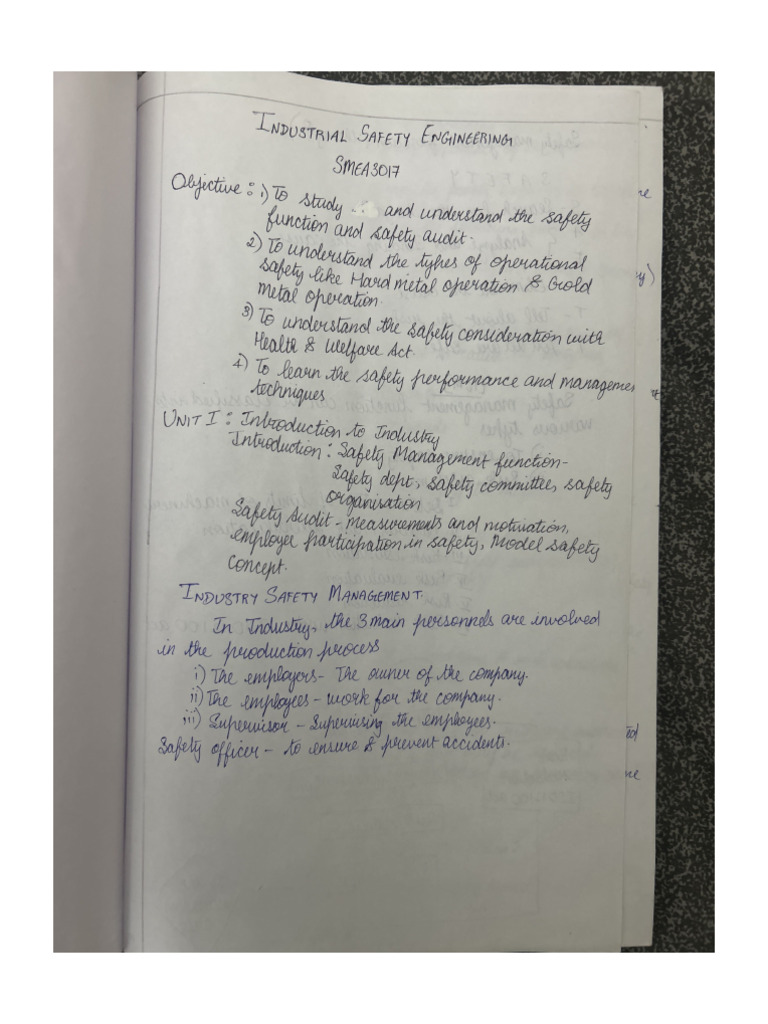 INDUSTRIAL SAFETY ENGINEERING
SMEA3017
Objective : 1) To study and understand the safety
function and safety audit.
2) To understand the types of operational
safety like Hard metal operation & Gold
metal operation.
3) To understand the safety consideration with
Health & Welfare Act.
4) To learn the safety performance and managemen
techniques
UNIT I : Introduction to Industry
Introduction : Safety Management function-
Safety dept, safety committee, safety
organisation
Safety Audit - measurements and motivation,
employee participation in safety, Model safety
Concept.
INDUSTRY SAFETY MANAGEMENT.
In Industry, the 3 main personnels are involved
in the production process
i) The employers - The owner of the company.
ii) The employees - work for the company.
iii) Supervisor - Supervising the employees.
Safety officer - to ensure & prevent accidents.